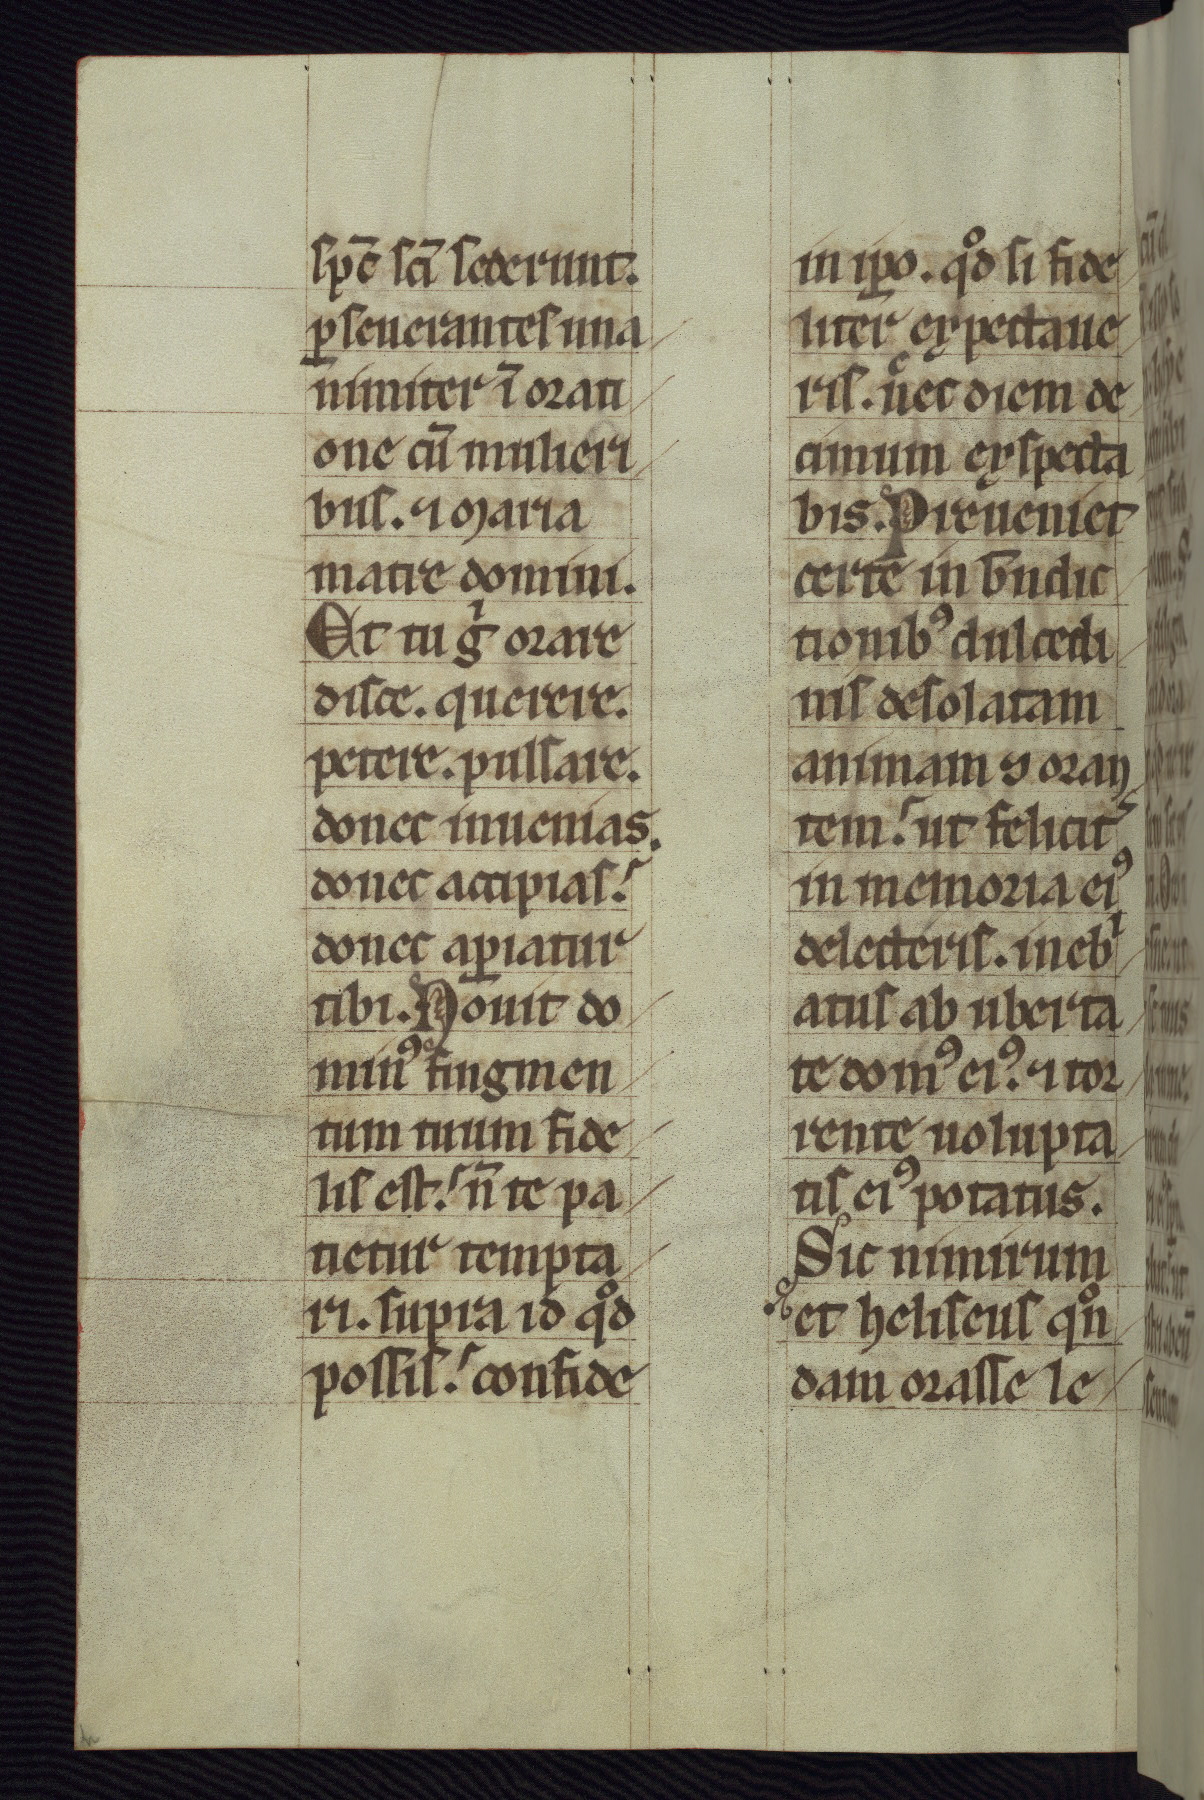 spc̄ scī sederunt.
ꝑseuerantes una
nimiter ī orati
one cū mulieri
bus. ⁊ Maria
matre domini.
Et tu gͥ orare
disce. querere.
petere. pulsare.
donec inuenias.
donec accipias.
donec aꝑiatur
tibi. Nouit do
minꝰ fingmen
tum tuum fide
lis est. n̄ te pa
tietur tempta
ri. supra id qͦd
possis. confide
in ip̄o. qͦd si fide
liter expectaue
ris. nͨec diem de
cimum exspecta
bis. Preueniet
certe in b̄ndic
tionibꝰ dulcedi
nis desolatam
animam ⁊ oran
tem. ut felicit᷑
in memoria eiꝰ
delecteris. inebͥ
atus ab uberta
te domꝰ eiꝰ. ⁊ tor
rente uolupta
tis eiꝰ potatus.
Sic nimirum
et heliseus qͦn
dam orasse le